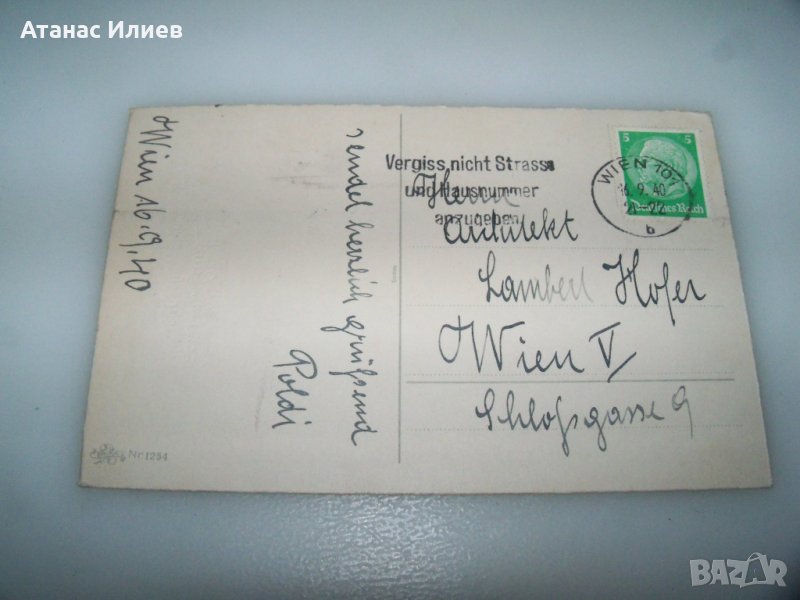 Атанас Илиев
Wien 16.9.40
sendet herzlich grüßend
Poldi
Nr.1254
Vergiss nicht Strasse
und Hausnummer
anzugeben
WIEN 101
16.9.40
b
5 5
Deutsches Reich
Herrn
Architekt
Lambert Hofer
Wien V
Schloßgasse 9
BAZAR